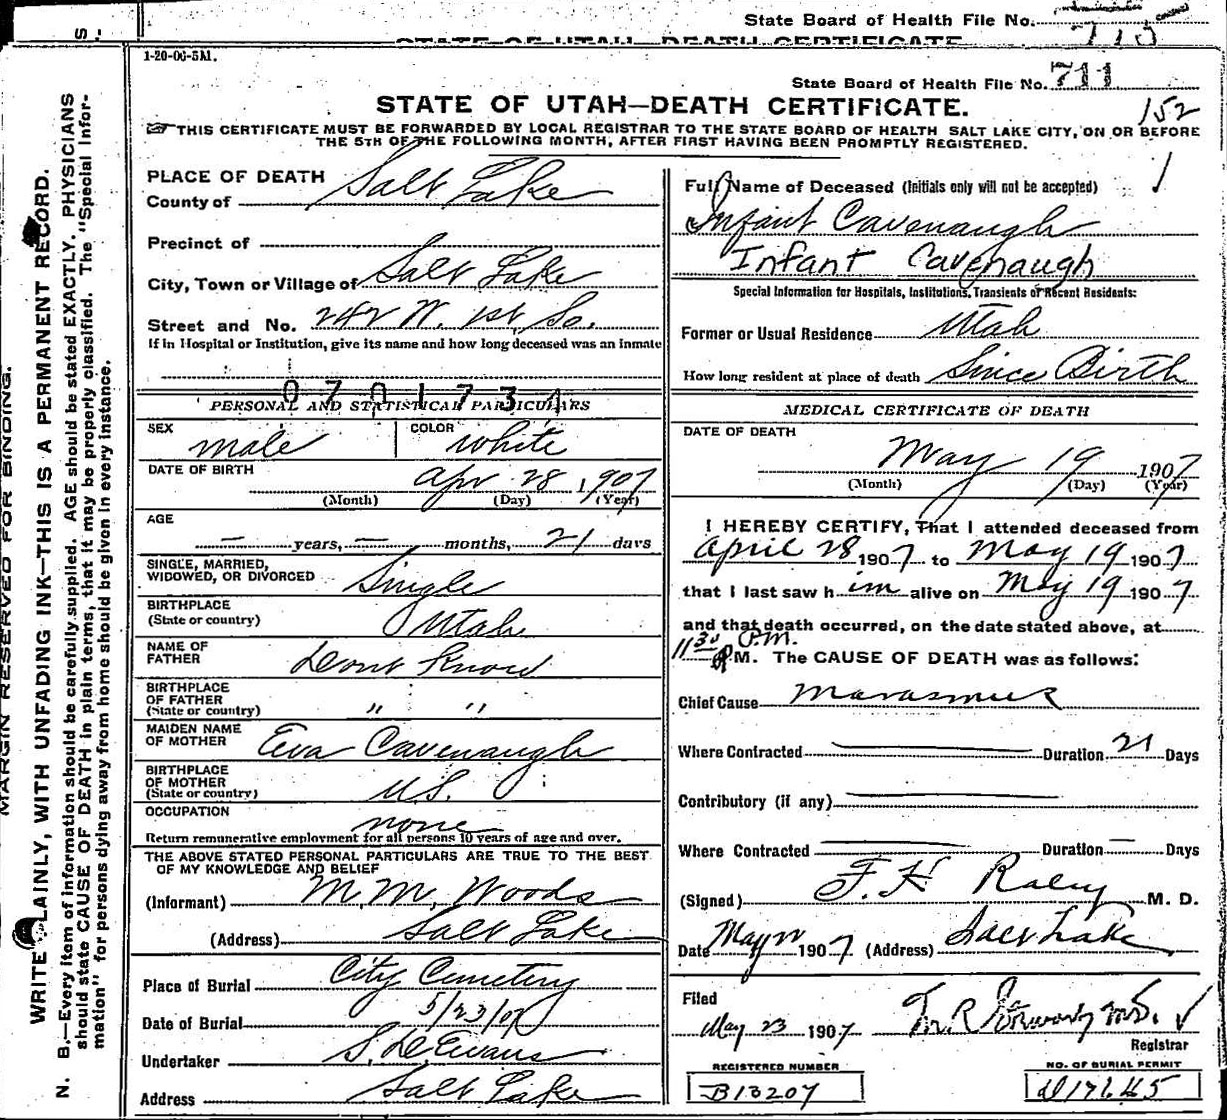 State Board of Health File No.
713
STATE OF UTAH—DEATH CERTIFICATE
1-20-06-5M.
State Board of Health File No. 711
STATE OF UTAH—DEATH CERTIFICATE.
152
THIS CERTIFICATE MUST BE FORWARDED BY LOCAL REGISTRAR TO THE STATE BOARD OF HEALTH SALT LAKE CITY, ON OR BEFORE
THE 5TH OF THE FOLLOWING MONTH, AFTER FIRST HAVING BEEN PROMPTLY REGISTERED.
PLACE OF DEATH
County of Salt Lake
Precinct of
City, Town or Village of Salt Lake
Street and No. 242 W. 1st So.
If in Hospital or Institution, give its name and how long deceased was an inmate
0701731
PERSONAL AND STATISTICAL PARTICULARS
SEX male COLOR white
DATE OF BIRTH Apr 28, 1907
(Month) (Day) (Year)
AGE
— years, — months, 21 days
SINGLE, MARRIED,
WIDOWED, OR DIVORCED Single
BIRTHPLACE
(State or country) Utah
NAME OF
FATHER Dont Know
BIRTHPLACE
OF FATHER
(State or country) " "
MAIDEN NAME
OF MOTHER Eva Cavenaugh
BIRTHPLACE
OF MOTHER
(State or country) U.S.
OCCUPATION none
Return remunerative employment for all persons 10 years of age and over.
THE ABOVE STATED PERSONAL PARTICULARS ARE TRUE TO THE BEST
OF MY KNOWLEDGE AND BELIEF
(Informant) M. M. Woods
(Address) Salt Lake
Place of Burial City Cemetery
Date of Burial 5/23/07
Undertaker S. D. Evans
Address Salt Lake
Full Name of Deceased (Initials only will not be accepted)
Infant Cavenaugh
Infant Cavenaugh
Special Information for Hospitals, Institutions, Transients or Recent Residents:
Former or Usual Residence Utah
How long resident at place of death Since Birth
MEDICAL CERTIFICATE OF DEATH
DATE OF DEATH
May 19 1907
(Month) (Day) (Year)
I HEREBY CERTIFY, That I attended deceased from
April 28 1907 to May 19 1907
that I last saw him alive on May 19 1907
and that death occurred, on the date stated above, at
11 30 P.M. M. The CAUSE OF DEATH was as follows:
Chief Cause Marasmus
Where Contracted — Duration 21 Days
Contributory (if any) —
Where Contracted — Duration — Days
(Signed) F. H Raley M. D.
Date May 1907 (Address) Salt Lake
Filed
May 23 1907
Registrar
REGISTERED NUMBER
B13207
NO. OF BURIAL PERMIT
MARGIN RESERVED FOR BINDING.
WRITE PLAINLY, WITH UNFADING INK—THIS IS A PERMANENT RECORD.
N. B.—Every item of information should be carefully supplied. AGE should be stated EXACTLY. PHYSICIANS
should state CAUSE OF DEATH in plain terms, that it may be properly classified. The "Special Infor-
mation" for persons dying away from home should be given in every instance.